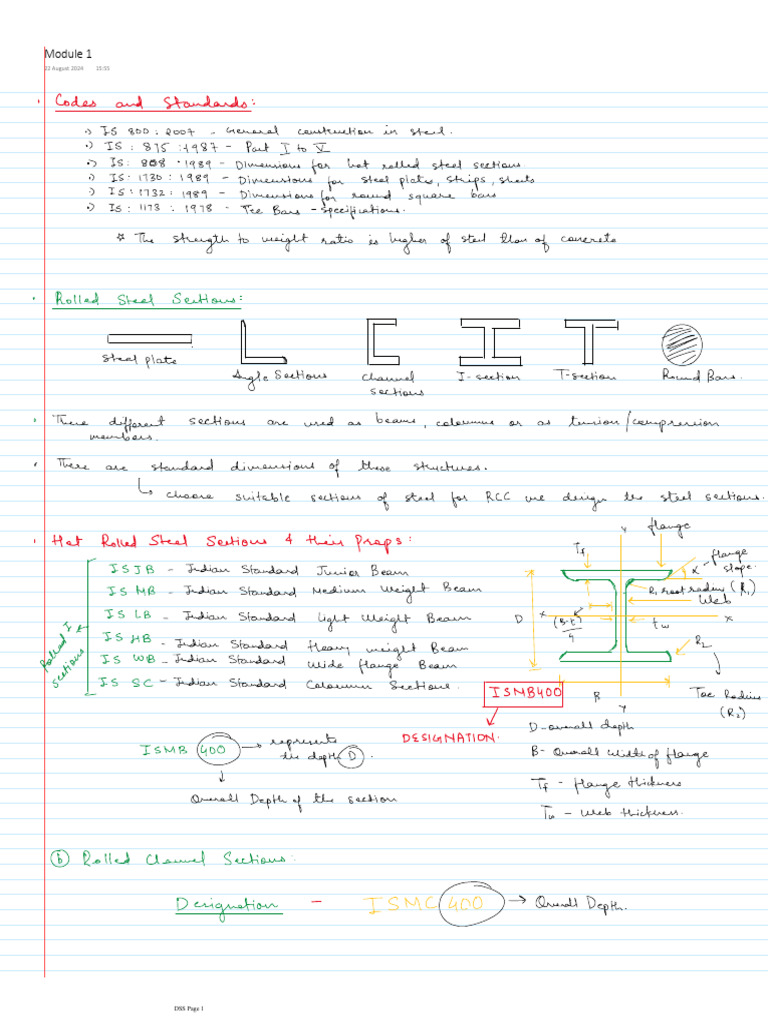 Module 1
22 August 2024 15:55
• Codes and Standards:
•) IS 800 : 2007 - General construction in steel.
•) IS : 875 : 1987 - Part I to V
•) IS : 808 : 1989 - Dimensions for hot rolled steel sections
•) IS : 1730 : 1989 - Dimensions for steel plates, strips, sheets
•) IS : 1732 : 1989 - Dimensions for round square bars
•) IS : 1173 : 1978 - Tee Bars - specifications.
* The strength to weight ratio is higher of steel than of concrete
• Rolled Steel Sections:
Steel plate
Angle Sections
Channel sections
I-section
T-section
Round Bars.
• These different sections are used as beams, coloumns or as tension/compression
members.
• There are standard dimensions of these structures.
↳ choose suitable sections of steel for RCC we design the steel sections.
• Hot Rolled Steel Sections & their Props:
ISJB - Indian Standard Junior Beam
IS MB - Indian Standard Medium Weight Beam
IS LB - Indian Standard Light Weight Beam
IS HB - Indian Standard Heavy weight Beam
IS WB - Indian Standard Wide flange Beam
IS SC - Indian Standard Coloumn Sections.
Rolled I
Sections
Y
flange
Tf
α - flange
slope.
R1 root radius (R1)
Web
D
x
(B-t)/4
tw
x
R2
B
Y
Toe Radius
(R2)
ISMB400
DESIGNATION.
ISMB 400 → represents
the depth D.
↓
Overall Depth of the section
D - overall depth
B - Overall width of flange
Tf - flange thickness
Tw - web thickness.
(b) Rolled Channel Sections:
Designation - ISMC 400 → Overall Depth.
DSS Page 1